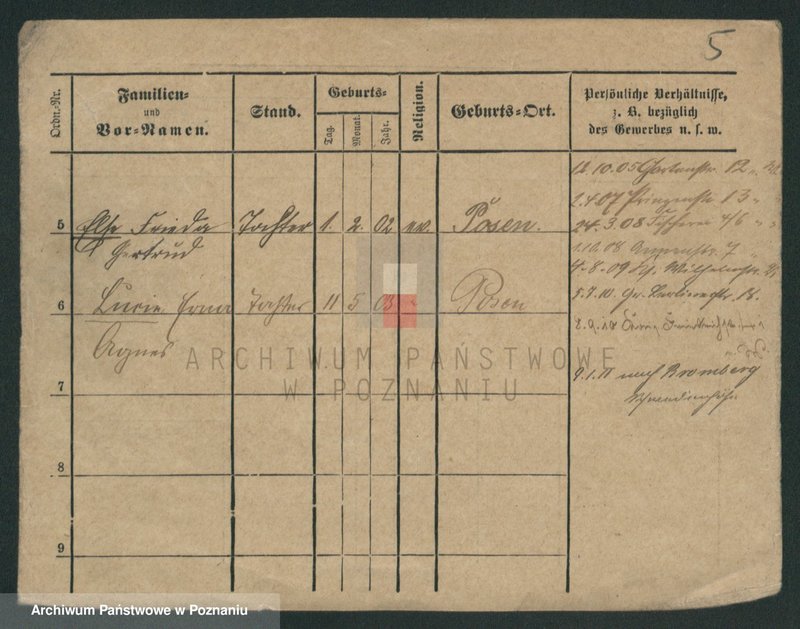 5
Ordn.-Nr.
Familien-
und
Vor-Namen.
Stand.
Geburts-
Tag.
Monat.
Jahr.
Religion.
Geburts-Ort.
Persönliche Verhältnisse,
z. B. bezüglich
des Gewerbes u. s. w.
12.10.05 Gartenstr. 12
2.4.07 Prinzenstr 13
5 Else Frieda Tochter 1. 2. 02 ev. Posen.
24.3.08 4/6
Gertrud
1.10.08 7
4.8.09 Wilhelmstr.
6 Lucie Erna Tochter 11 5 03 " Posen
5.7.10. Gr. 18.
Agnes
ARCHIWUM PAŃSTWOWE
W POZNANIU
7
9.1.11 nach Bromberg
8
9
Archiwum Państwowe w Poznaniu